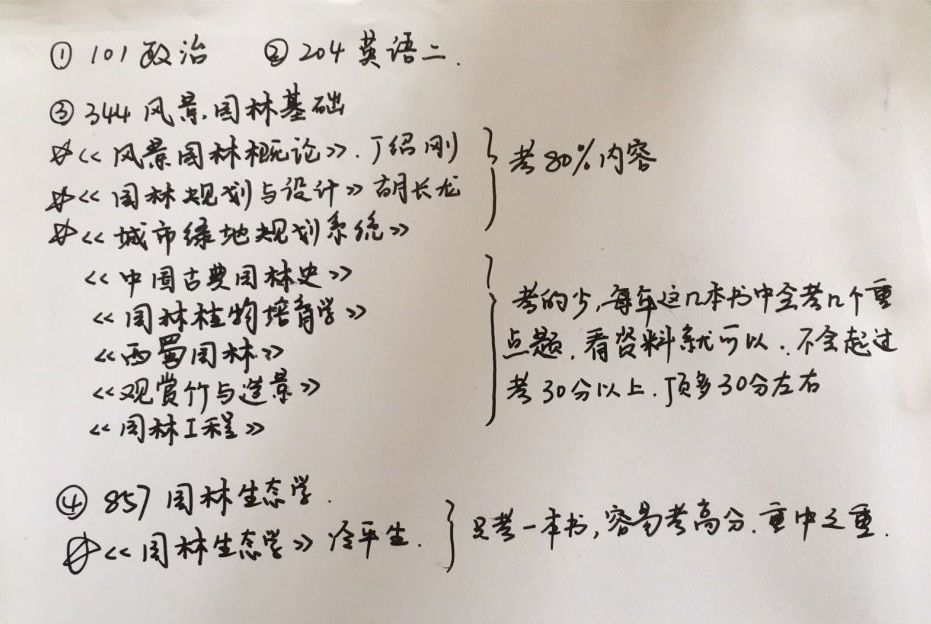 ① 101 政治 ② 204 英语二.
③ 344 风景园林基础
☆《风景园林概论》. 丁绍刚
☆《园林规划与设计》胡长龙
☆《城市绿地规划系统》
考80%内容
《中国古典园林史》
《园林植物培育学》
《西蜀园林》
《观赏竹与造景》
《园林工程》
考的少, 每年这几本书中会考几个重
点题, 看资料就可以. 不会超过
考30分以上. 顶多30分左右
④ 857 园林生态学.
☆《园林生态学》冷平生.
只考一本书, 容易考高分. 重中之重.